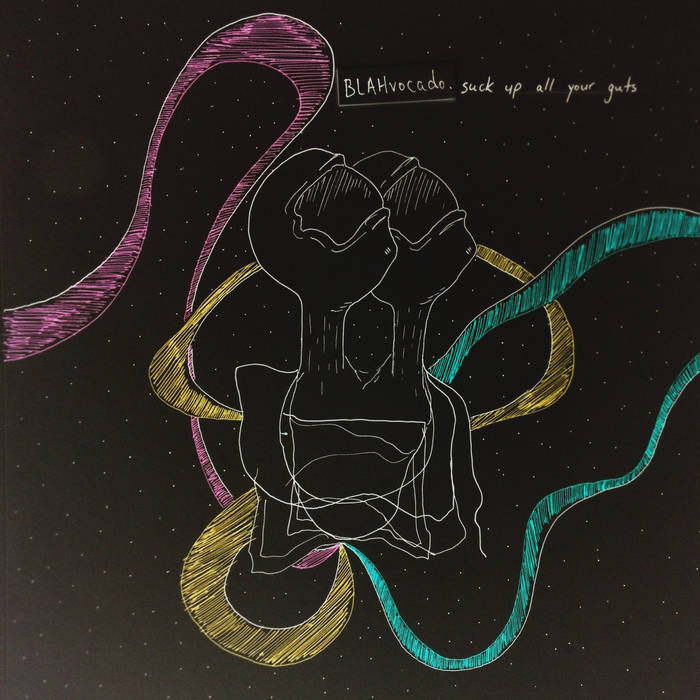 BLAHvocado. suck up all your guts